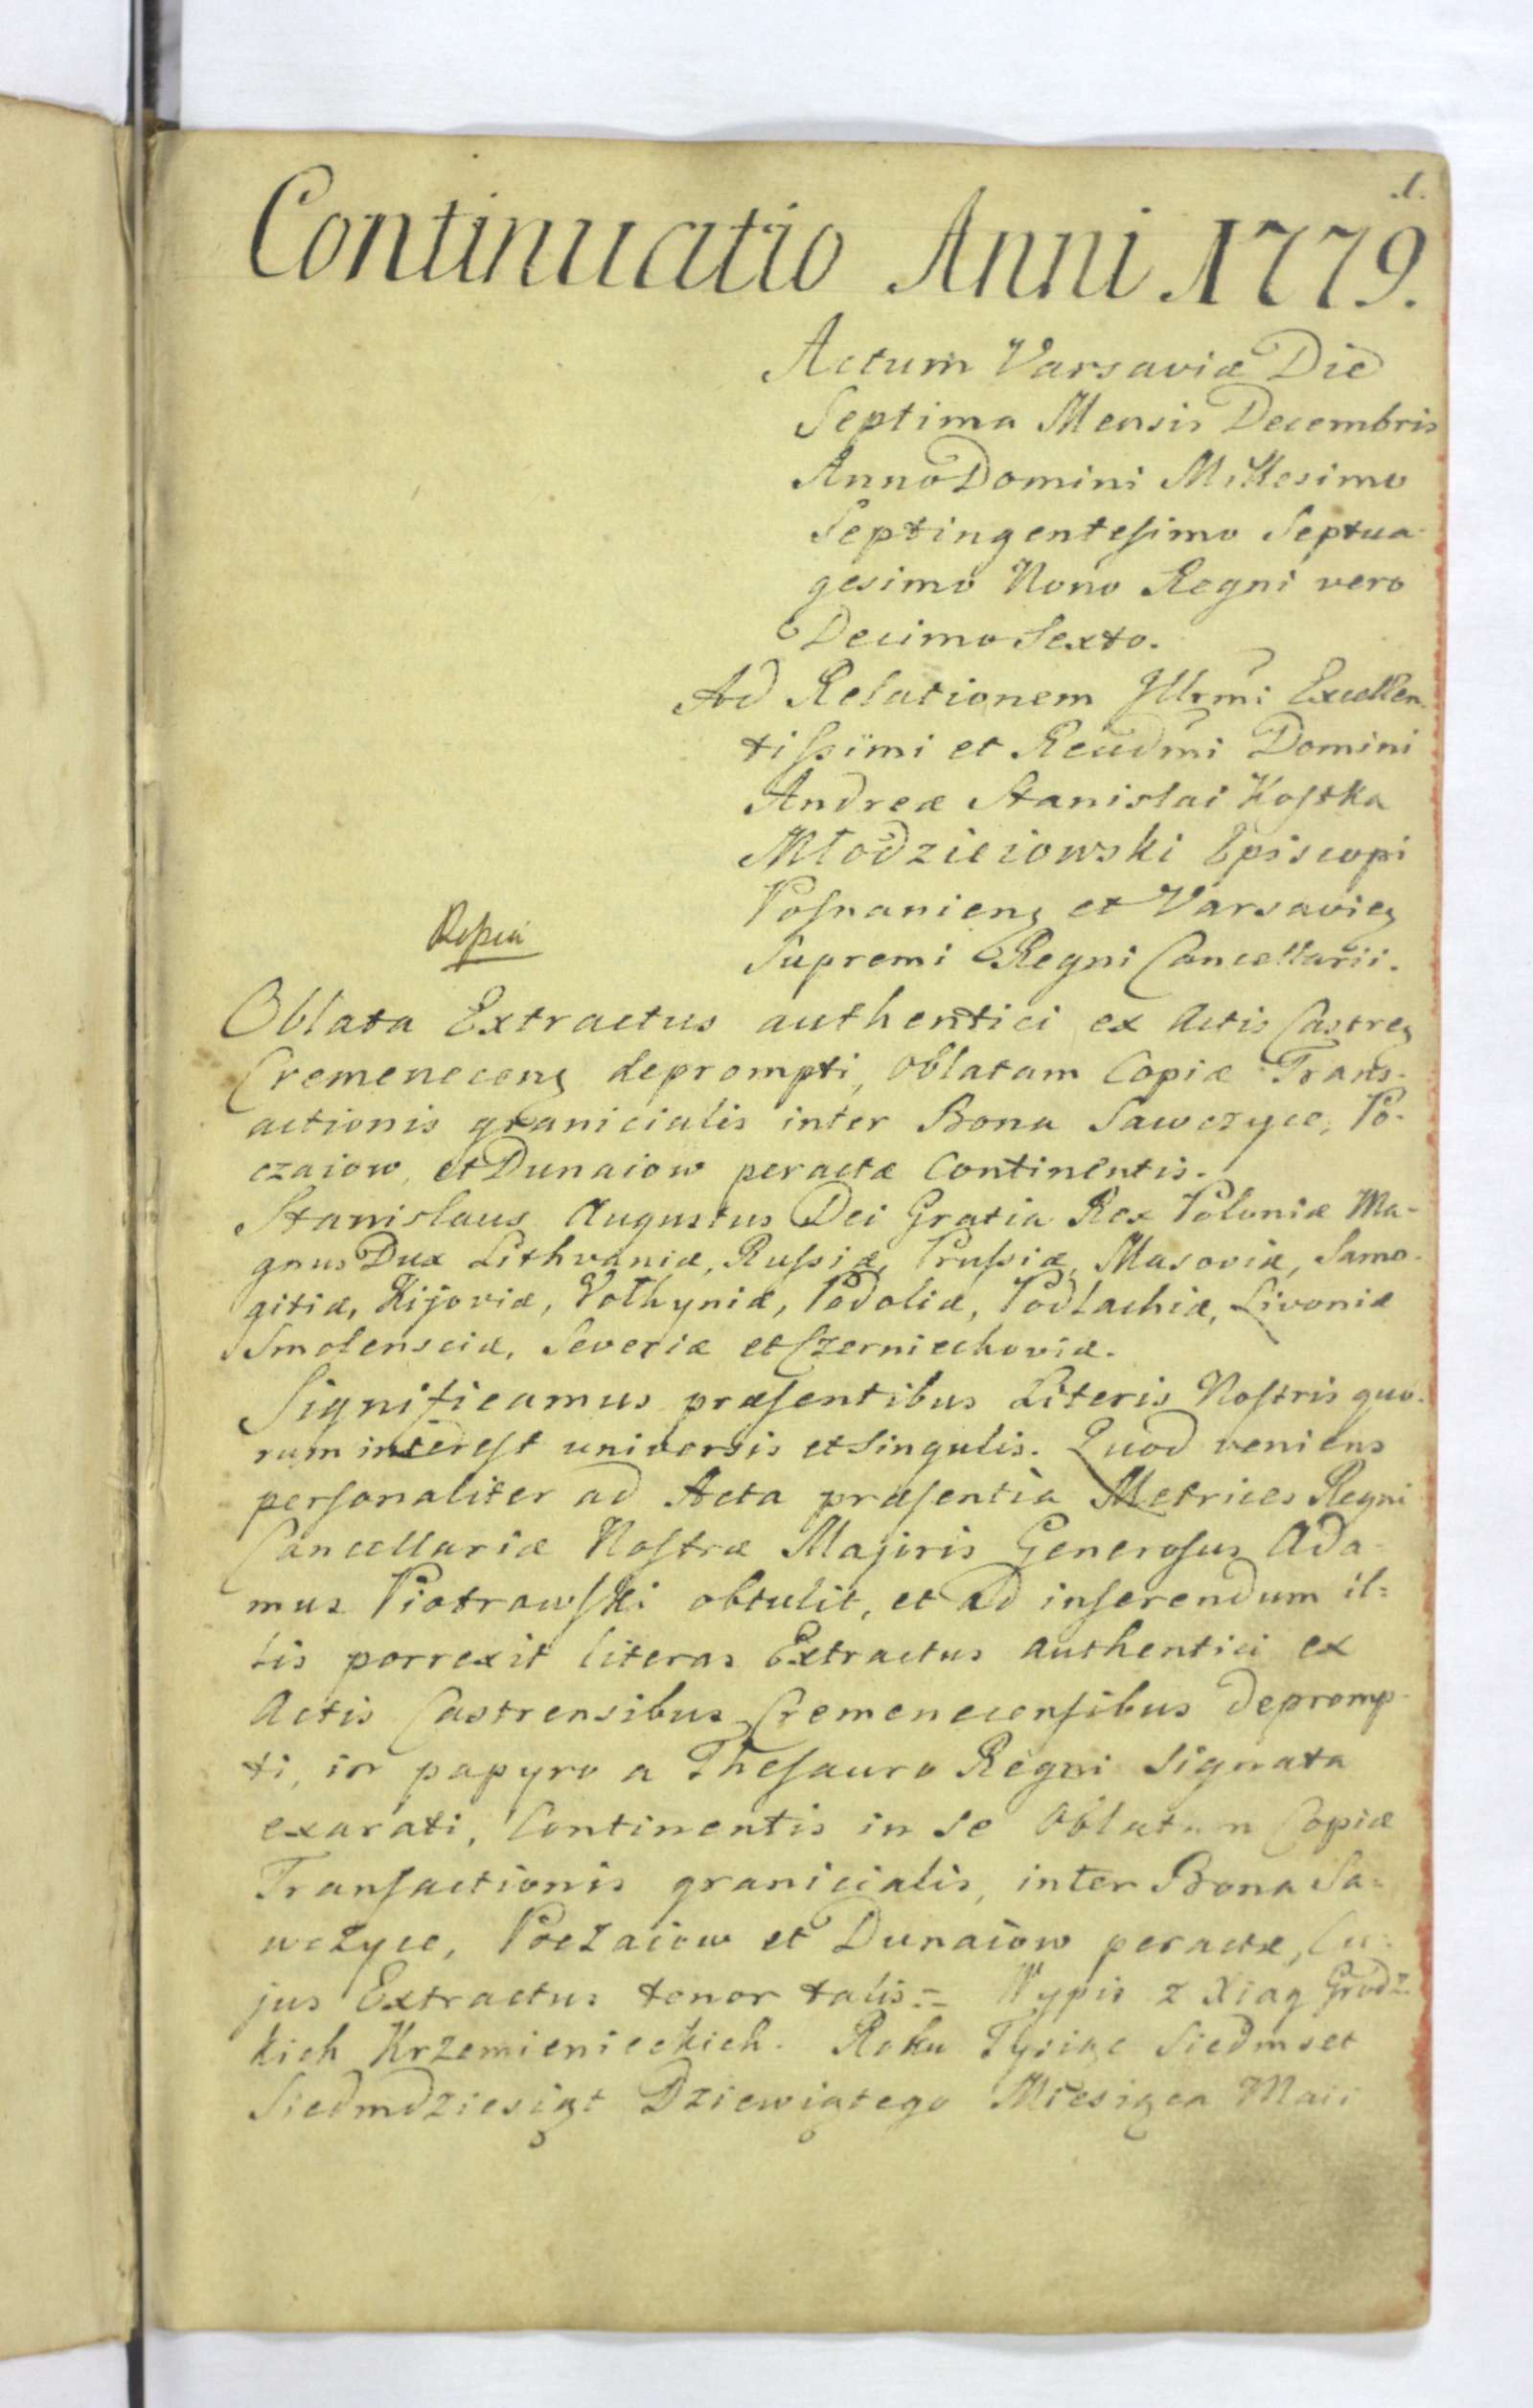 .1.
Continuatio Anni 1779.
Actum Varsaviæ Die
Septima Mensis Decembris
Anno Domini Millesimo
Septingentesimo Septua-
gesimo Nono Regni vero
Decimo Sexto.
Ad Relationem Illrmi Excellen-
tissimi et Reudmi Domini
Andreæ Stanislai Kostka
Młodzieiowski Episcopi
Posnanieng et Varsavieg
Supremi Regni Cancellarii.
Oblata Extractus authentici ex Actis Castreg
Cremeneceng deprompti, Oblatam Copiæ Trans-
actionis granicialis inter Bona Sawczyce, Po-
czaiow, et Dunaiow peractæ Continentis.
Stanislaus Augustus Dei Gratia Rex Poloniæ Ma-
gnus Dux Lithvaniæ, Russiæ, Prussiæ, Masoviæ, Samo-
gitiæ, Kijoviæ, Volhyniæ, Podoliæ, Podlachiæ, Livoniæ
Smolensciæ, Severiæ et Czerniechoviæ.
Significamus præsentibus Literis Nostris quo-
rum interest universis et Singulis. Quod veniens
personaliter ad Acta præsentia Metrices Regni
Cancellariæ Nostræ Majoris Generosus Ada-
mus Piotrowski obtulit, et ad inserendum il=
lis porrexit literas Extractus authentici ex
Actis Castrensibus Cremenecensibus depromp-
ti, in papyro a Thesauro Regni Signata
exarati, Continentis in se Oblatam Copiæ
Transactionis granicialis, inter Bona Sa=
wczyce, Poczaiow et Dunaiow peractæ, Cu-
jus Extractus tenor talis = Wypis z Xiąg Grodz-
kich Krzemienieckich. Roku Tysiąc Siedmset
Siedmdziesiąt Dziewiątego Miesiąca Maii